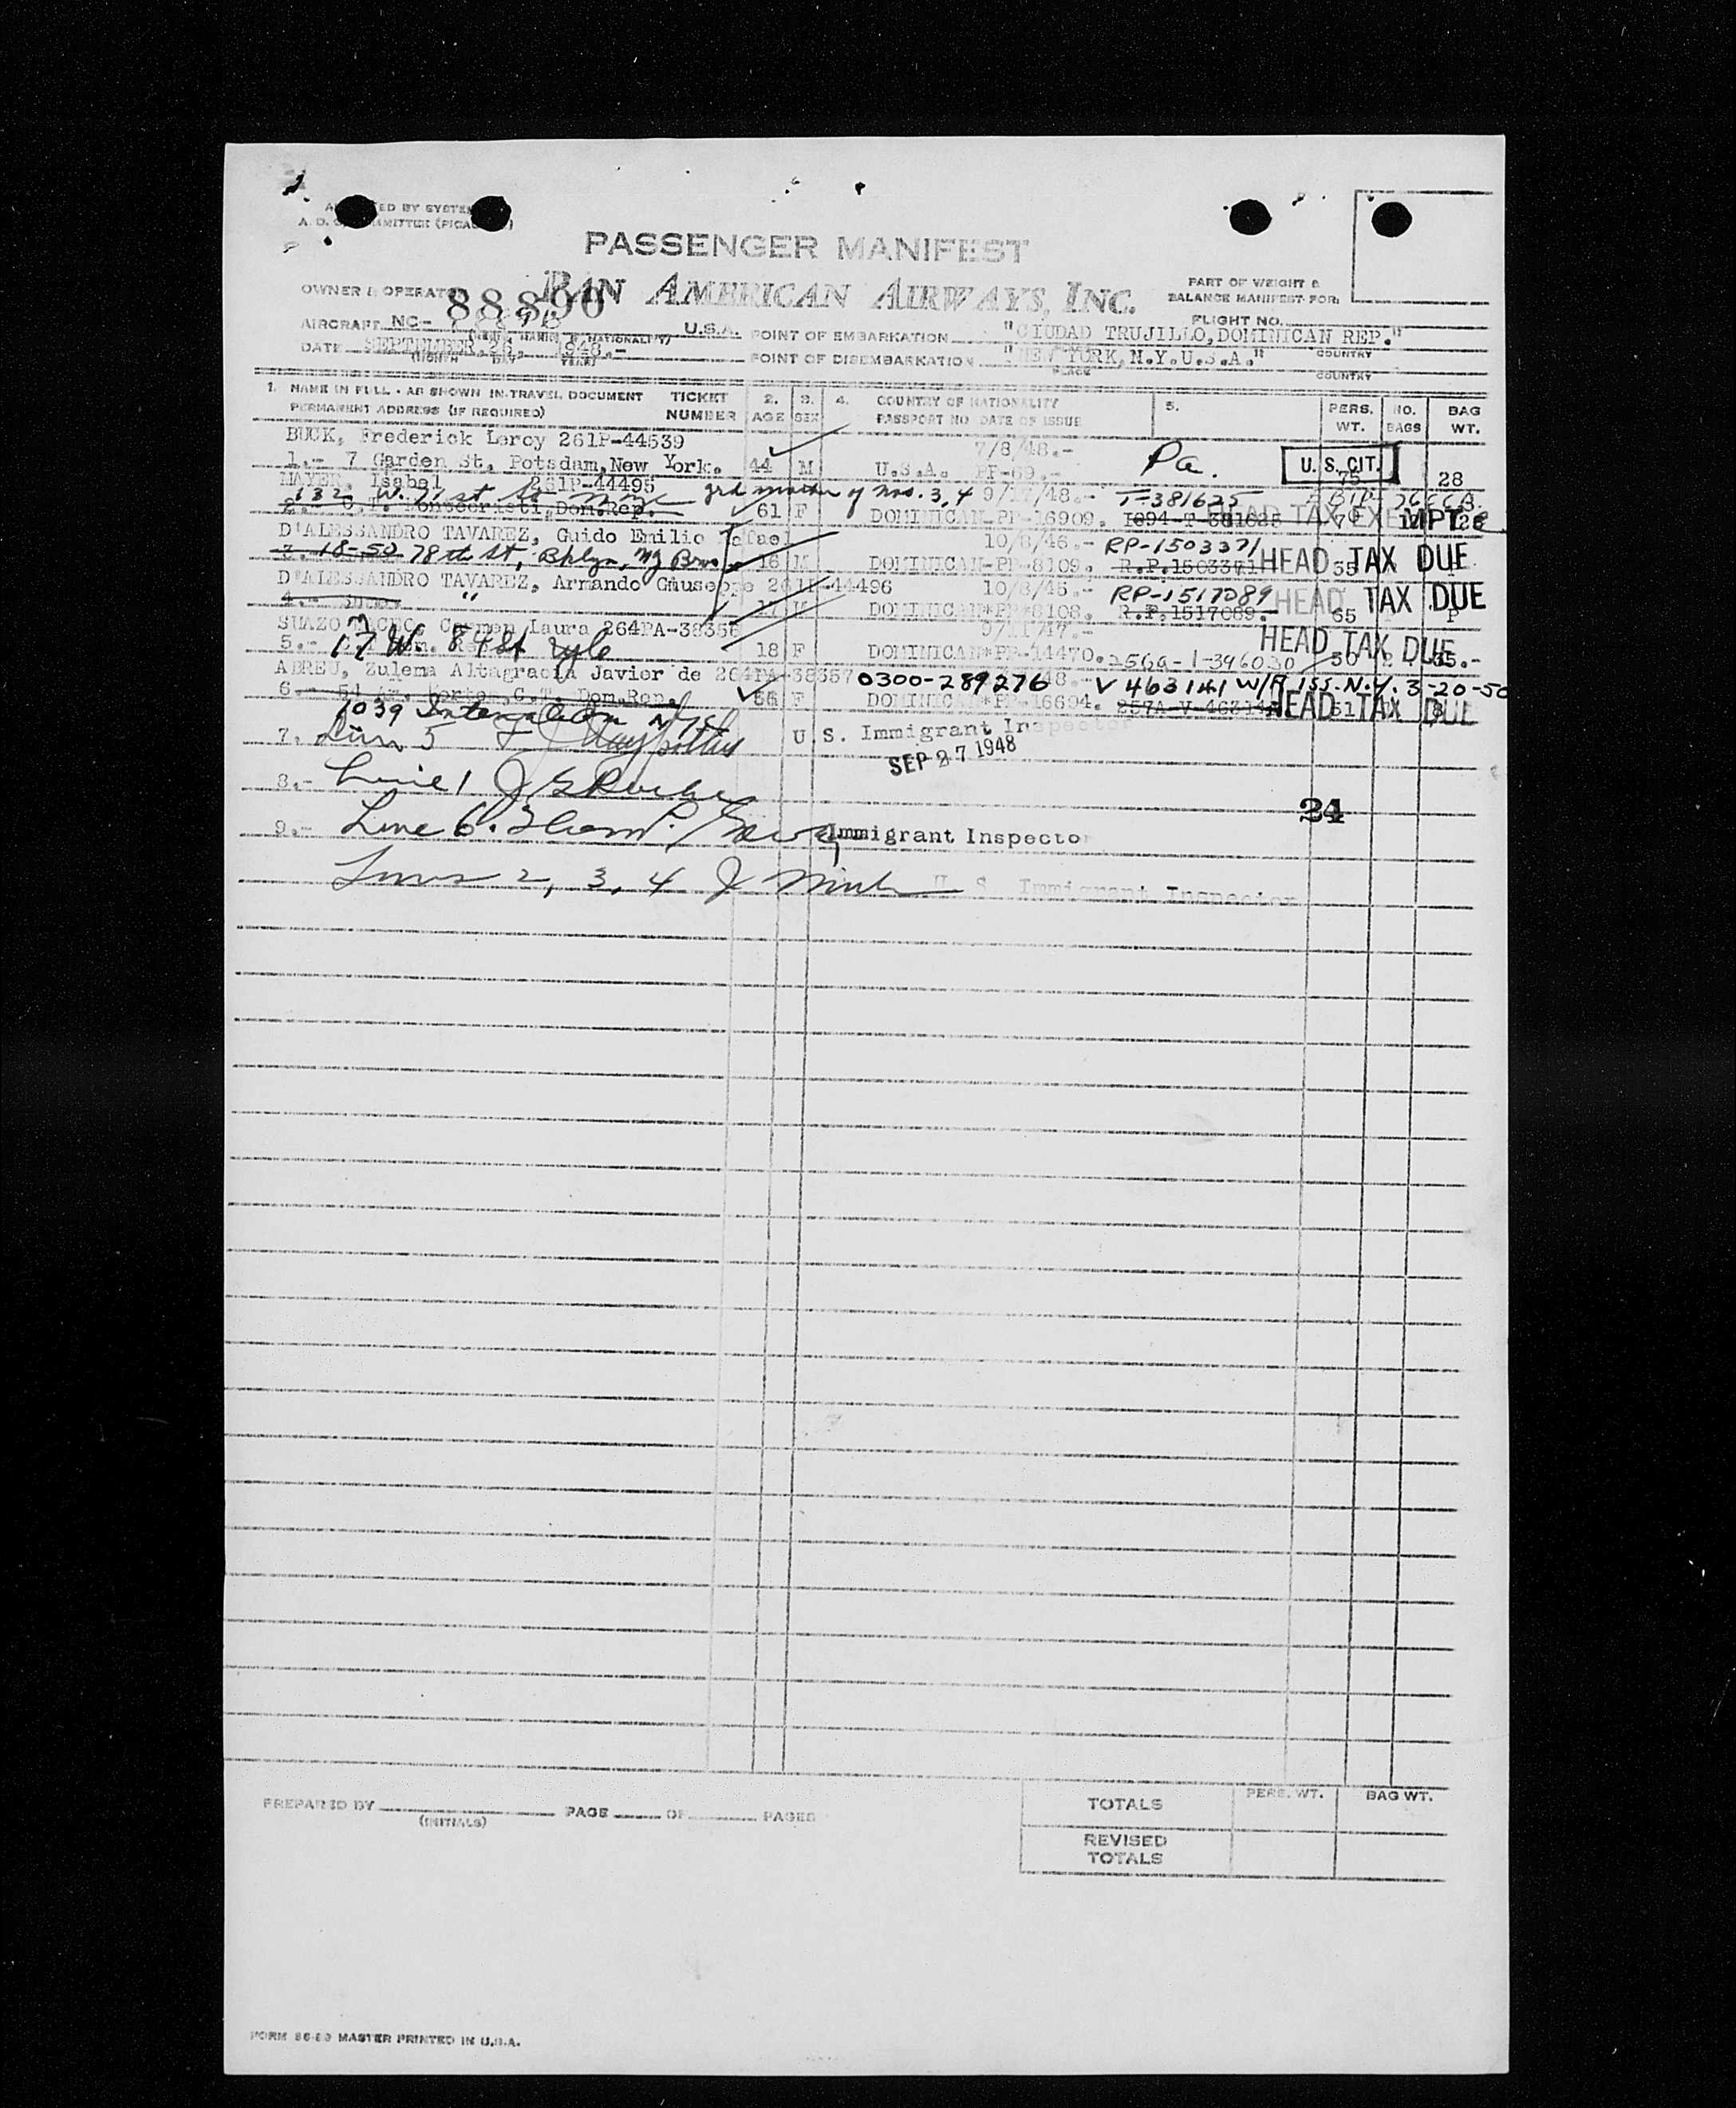 PASSENGER MANIFEST
OWNER & OPERATOR PAN AMERICAN AIRWAYS, INC.
88890
PART OF WEIGHT &
BALANCE MANIFEST FOR:
FLIGHT NO.
AIRCRAFT NC- U.S.A. POINT OF EMBARKATION "CIUDAD TRUJILLO, DOMINICAN REP."
DATE SEPTEMBER 26, 1948.- POINT OF DISEMBARKATION "NEW YORK, N.Y. U.S.A."
(MONTH DAY, YEAR) PLACE COUNTRY
COUNTRY
1. NAME IN FULL - AS SHOWN IN TRAVEL DOCUMENT TICKET 2. 3. 4. COUNTRY OF NATIONALITY 5. PERS. NO. BAG
PERMANENT ADDRESS (IF REQUIRED) NUMBER AGE SEX PASSPORT NO DATE OF ISSUE WT. BAGS WT.
BUCK, Frederick Leroy 261P-44539 7/8/48.- Pa. U. S. CIT.
1.- 7 Garden St, Potsdam, New York. 44 M U.S.A. PP-69.- 75 28
MAYER, Isabel 261P-44495 9/17/48.- T-381625
132 W. 71 st St grd mother of nos. 3, 4
2.- Montecristi, Dom.Rep. 61 F DOMINICAN-PP-16909. HEAD TAX EXEMPT
D'ALESSANDRO TAVAREZ, Guido Emilio Rafael 10/8/46.- RP-1503371
3. 18-50 78th St, Bklyn, NY 16 M DOMINICAN-PP-8109. R.P.1503371 HEAD TAX DUE 55
D'ALESSANDRO TAVAREZ, Armando Giuseppe 261P-44496 10/8/46.- RP-1517089
4.- " 17 M DOMINICAN*PP*8108. R.P.1517089.- HEAD TAX DUE 65 P
SUAZO Carmen Laura 264PA-38356 9/11/47.- HEAD TAX DUE
5.- 17 W. 84 St 18 F DOMINICAN*PP-14470. 256a-1-396030 50 35.-
ABREU, Zulema Altagracia Javier de 264PA-38357 0300-289276 48.- V 463141 W/R iss. N.Y. 3-20-50
6.- C.T. Dom.Rep. 56 F DOMINICAN*PP-16694. HEAD TAX DUE 51
1039
7.- Line 5 U.S. Immigrant Inspector
SEP 27 1948
8.- Line 1
34
9.- Line 6. Immigrant Inspector
Lines 2, 3, 4 U. S. Immigrant Inspector
PREPARED BY PAGE OF PAGES
(INITIALS)
TOTALS PERS. WT. BAG WT.
REVISED
TOTALS
FORM MASTER PRINTED IN U.S.A.